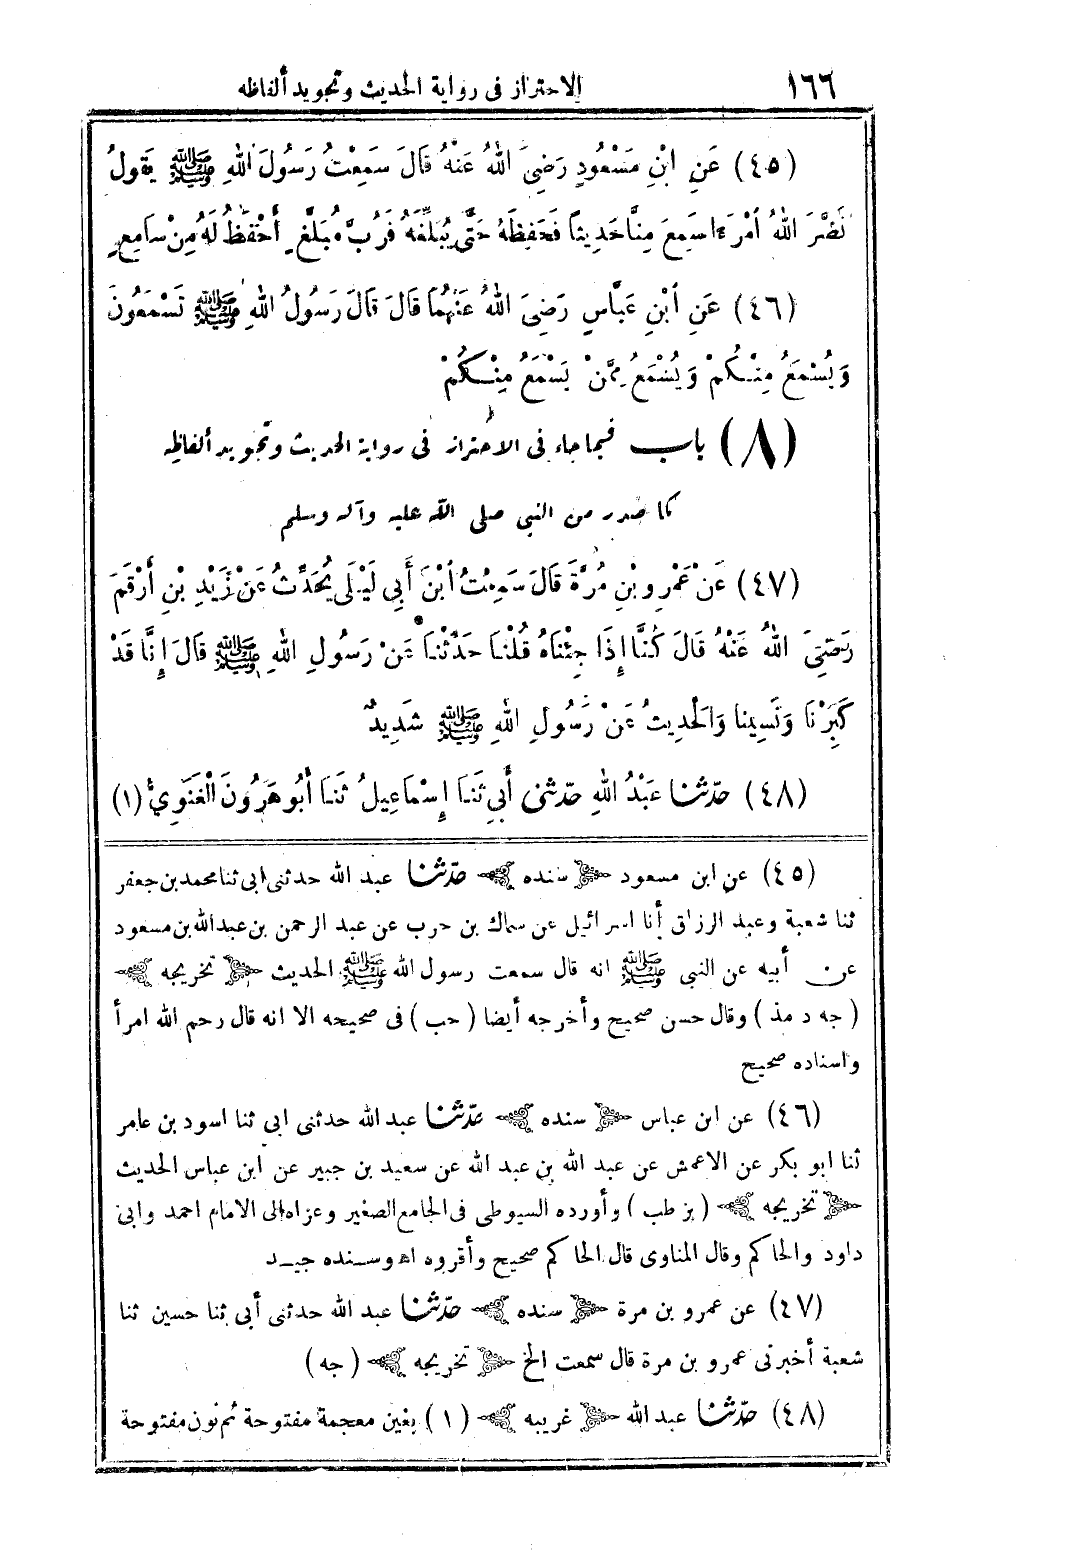 ١٦٦ الاحتراز فى رواية الحديث وتجويد ألفاظه
(٤٥) عَنِ ابْنِ مَسْعُودٍ رَضِىَ اللهُ عَنْهُ قَالَ سَمِعْتُ رَسُولَ اللهِ ﷺ يَقُولُ
نَضَّرَ اللهُ أمْرَءًا سَمِعَ مِنَّا حَدِيثًا فَحَفِظَهُ حَتَّى يُبَلِّغَهُ فَرُبَّ مُبَلَّغٍ أَحْفَظُ لَهُ مِنْ سَامِعٍ
(٤٦) عَنِ أبْنِ عَبَّاسٍ رَضِىَ اللهُ عَنْهُمَا قَالَ قَالَ رَسُولُ اللهِ ﷺ تَسْمَعُونَ
وَيُسْمَعُ مِنْكُمْ وَيُسْمَعُ مِمَّنْ يَسْمَعُ مِنْكُمْ
(٨) باب فيما جاء فى الاحتراز فى رواية الحديث وتجويد ألفاظه
كما صدر من النبي صلى الله عليه وآله وسلم
(٤٧) عَنْ عَمْرِو بْنِ مُرَّةَ قَالَ سَمِعْتُ أبْنَ أَبِي لَيْلَى يُحَدِّثُ عَنْ زَيْدِ بْنِ أَرْقَمَ
رَضِىَ اللهُ عَنْهُ قَالَ كُنَّا إِذَا جِئْنَاهُ قُلْنَا حَدِّثْنَا عَنْ رَسُولِ اللهِ ﷺ قَالَ إِنَّا قَدْ
كَبِرْنَا وَنَسِينَا وَالْحَدِيثُ عَنْ رَسُولِ اللهِ ﷺ شَدِيدٌ
(٤٨) حدّثنا عَبْدُ اللهِ حدّثنى أَبِي ثَنَا إِسْمَاعِيلُ ثَنَا أَبُو هَرُونَ الْغَنَوِيُّ (١)
(٤٥) عن ابن مسعود ﴿ سنده ﴾ حدّثنا عبد الله حدثنى أبى ثنا محمد بن جعفر
ثنا شعبة وعبد الرزاق أنا اسرائيل عن سماك بن حرب عن عبد الرحمن بن عبد الله بن مسعود
عن أبيه عن النبى ﷺ انه قال سمعت رسول الله ﷺ الحديث ﴿ تخريجه ﴾
( جه د مذ ) وقال حسن صحيح وأخرجه أيضا ( حب ) فى صحيحه الا انه قال رحم الله امرأ
واسناده صحيح
(٤٦) عن ابن عباس ﴿ سنده ﴾ حدّثنا عبد الله حدثنى ابى ثنا اسود بن عامر
ثنا ابو بكر عن الاعمش عن عبد الله بن عبد الله عن سعيد بن جبير عن ابن عباس الحديث
﴿ تخريجه ﴾ ( بز طب ) وأورده السيوطى فى الجامع الصغير وعزاه إلى الامام احمد وابى
داود والحاكم وقال المناوى قال الحاكم صحيح وأقروه اه وسنده جيد
(٤٧) عن عمرو بن مرة ﴿ سنده ﴾ حدّثنا عبد الله حدثنى أبى ثنا حسين ثنا
شعبة أخبرنى عمرو بن مرة قال سمعت الخ ﴿ تخريجه ﴾ ( جه )
(٤٨) حدّثنا عبد الله ﴿ غريبه ﴾ ( ١ ) بغين معجمة مفتوحة ثم نون مفتوحة